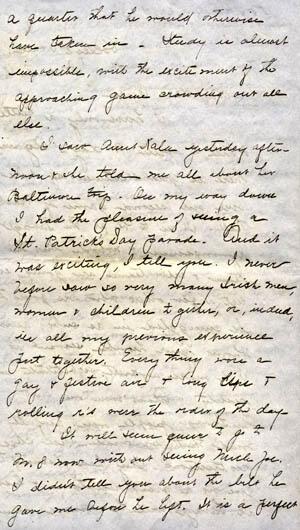 a quarter that he would otherwise
have taken in. Study is almost
impossible, with the excitement of the
approaching game crowding out all
else.
I saw Aunt yesterday after-
noon & she told me all about her
Baltimore trip. On my way down
I had the pleasure of seeing a
St. Patrick's Day parade. And it
was exciting, I tell you. I never
before saw so very many Irish men,
women & children together, or, indeed,
in all my previous experience
put together. Everything wore a
gay & festive air & long lips &
rolling r's were the order of the day.
It will seem queer to go to
now without seeing Uncle Joe.
I didn't tell you about the belt he
gave me before he left. It is a perfect